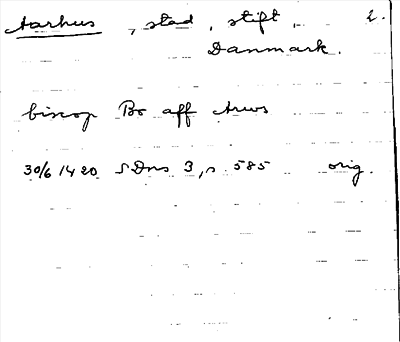 Aarhus, stad, stift, 2.
Danmark.
biscop Bo aff Arws
30/6 1420 SDns 3, s. 585 orig.